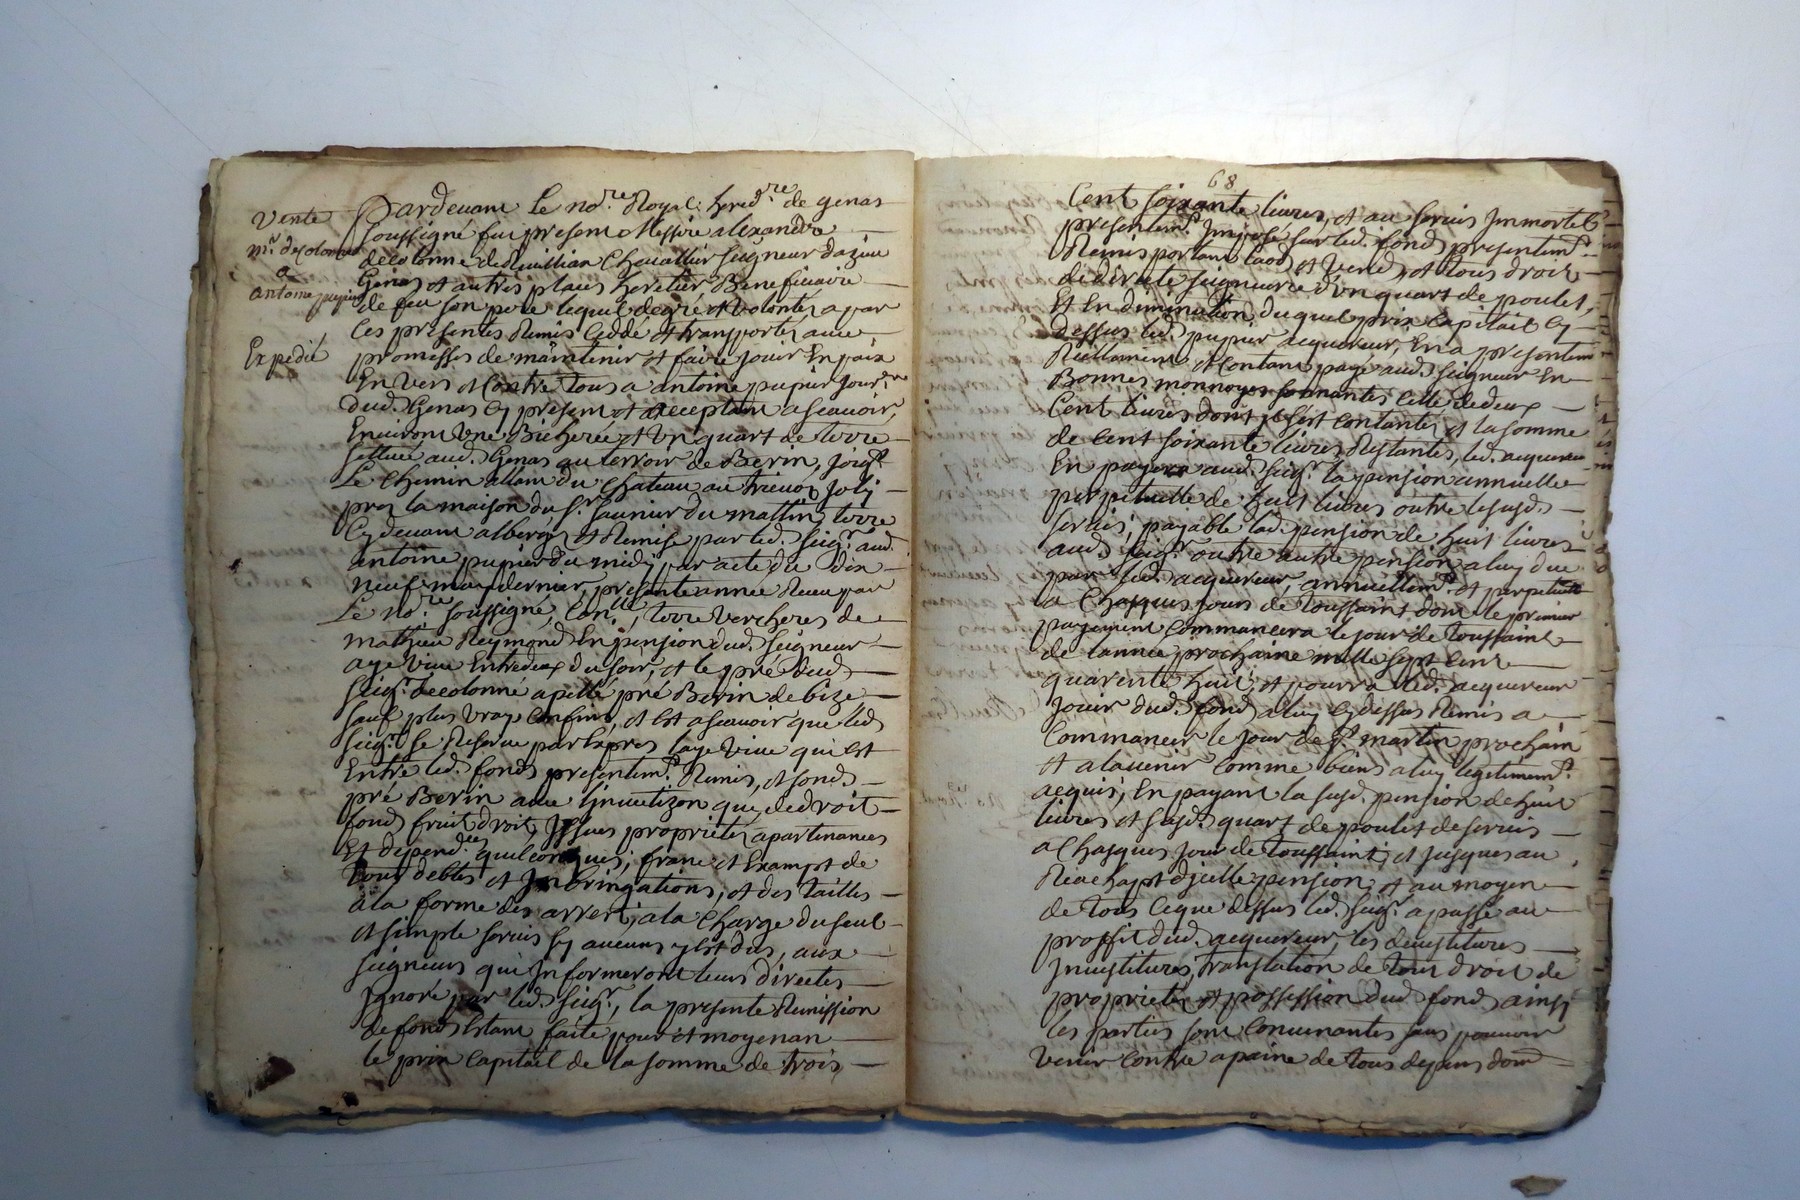 Vente
Mr. decolonne
a
antoine pupier
Expedié
Pardevant Le nore. Royal heredre. de genas
soussigné fut present Messire alixandre
decolonne Chevallier seigneur dazieu
Genas et autres places heretier Beneficiaire
de feu son pere lequel de gré et volonté, a par
Ces presentes Remis Ceddé et transporté, avec
promesses de maintenir et faire jouir En paix
Envers et Contre tous a antoine pupier
dud. Genas Cy present et acceptant ascavoir,
Environt Une Bicherée et Un quart de terre
settuée aud. Genas au terroir de Berin, joigt.
Le Chemin allant du Chateau au joly
prez la maison du Sr. saunier du mattin, terre
Cydevant albergé et Remise par led. seigr. aud.
antoine pupier du midy par acte du dix
neuf may dernier, presente année Receu par
Le nore. soussigné, terre vercheres de
mathieu Reymond En pension dud. seigneur
aye vive Entredeux du soir, et le pré dud.
seigr. decolonne apellé pré Berin de bize
sauf plus vrays Confins, et Est ascavoir que led.
seigr. se Reserve par Exprés laye vive qui est
Entre led. fond presentemt. Remis, et fond
pré Berin avec que, de droit
fond fruit droit Issues proprietés apartenances
Et dependces. quelconques, franc et Exampt de
tous debtes et Inbringations, et des tailles
a la forme des arrest, a la Charge du seul
et simple servis sy aucuns y Est dus, aux
seigneurs qui Informeront leurs directes
Ignoré par led. seigr., la presente Remission
de fond Estant faite pour et moyenan
le prix Capitail de la somme de trois
68
Cent soixante livres, et au servis Immortel
presentemt. Imposé sur led. fond presentemt.
Remis portant laod et vend, et tous droit
de directe seigneurie d'un quart de poulet,
Et En diminution duquel prix Capitail Cy
dessus led. pupier acquereur, En a presentem
Reellement et Contant payé aud. seigneur En
Bonnes monnoyes sonnantes Celle de deux
Cent livres dont Contanté, et la somme
de Cent soixante livres Restantes, led. acquereur
En payera aud. seigr. la pension annuelle
perpetuelle de huit livres outre le susd.
servis, payable lad. pension de huit livres
aud. seigr. outre autre pension a luy due
par led. acquereur, annuellemt. et perpetuelle
a Chasques jours de toussaint dont le premier
payement Commancera le jour de toussaint
de lannée prochaine mille sept Cent
quarente huit, et pourra led. acquereur
jouir dud. fond a luy Cydessus Remis a
Commancer le jour de St. martin prochain
Et a lavenir Comme bien a luy legitimemt.
acquis, En payant la susd. pension de huit
livres et susd. quart de poulet de servis
a Chasques jour de toussaint et jusques au
Reachapt dicelle pension, et au moyen
de tous Ce que dessus led. seigr. a passé au
proffit dud. acquereur, les devestitures
Investitures, translation de tout droit de
propriété et possession dud. fond ainsi
les parties sont Convenantes sans pouvoir
venir Contre a paine de tous depens dom